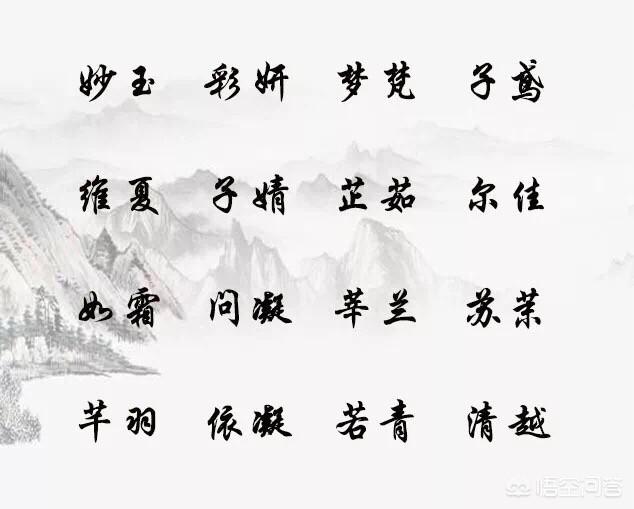 妙玉 彩妍 梦梵 子鸢
维夏 子婧 芷茹 尔佳
如霜 问凝 莘兰 苏茉
芊羽 依凝 若青 清越
悟空问答